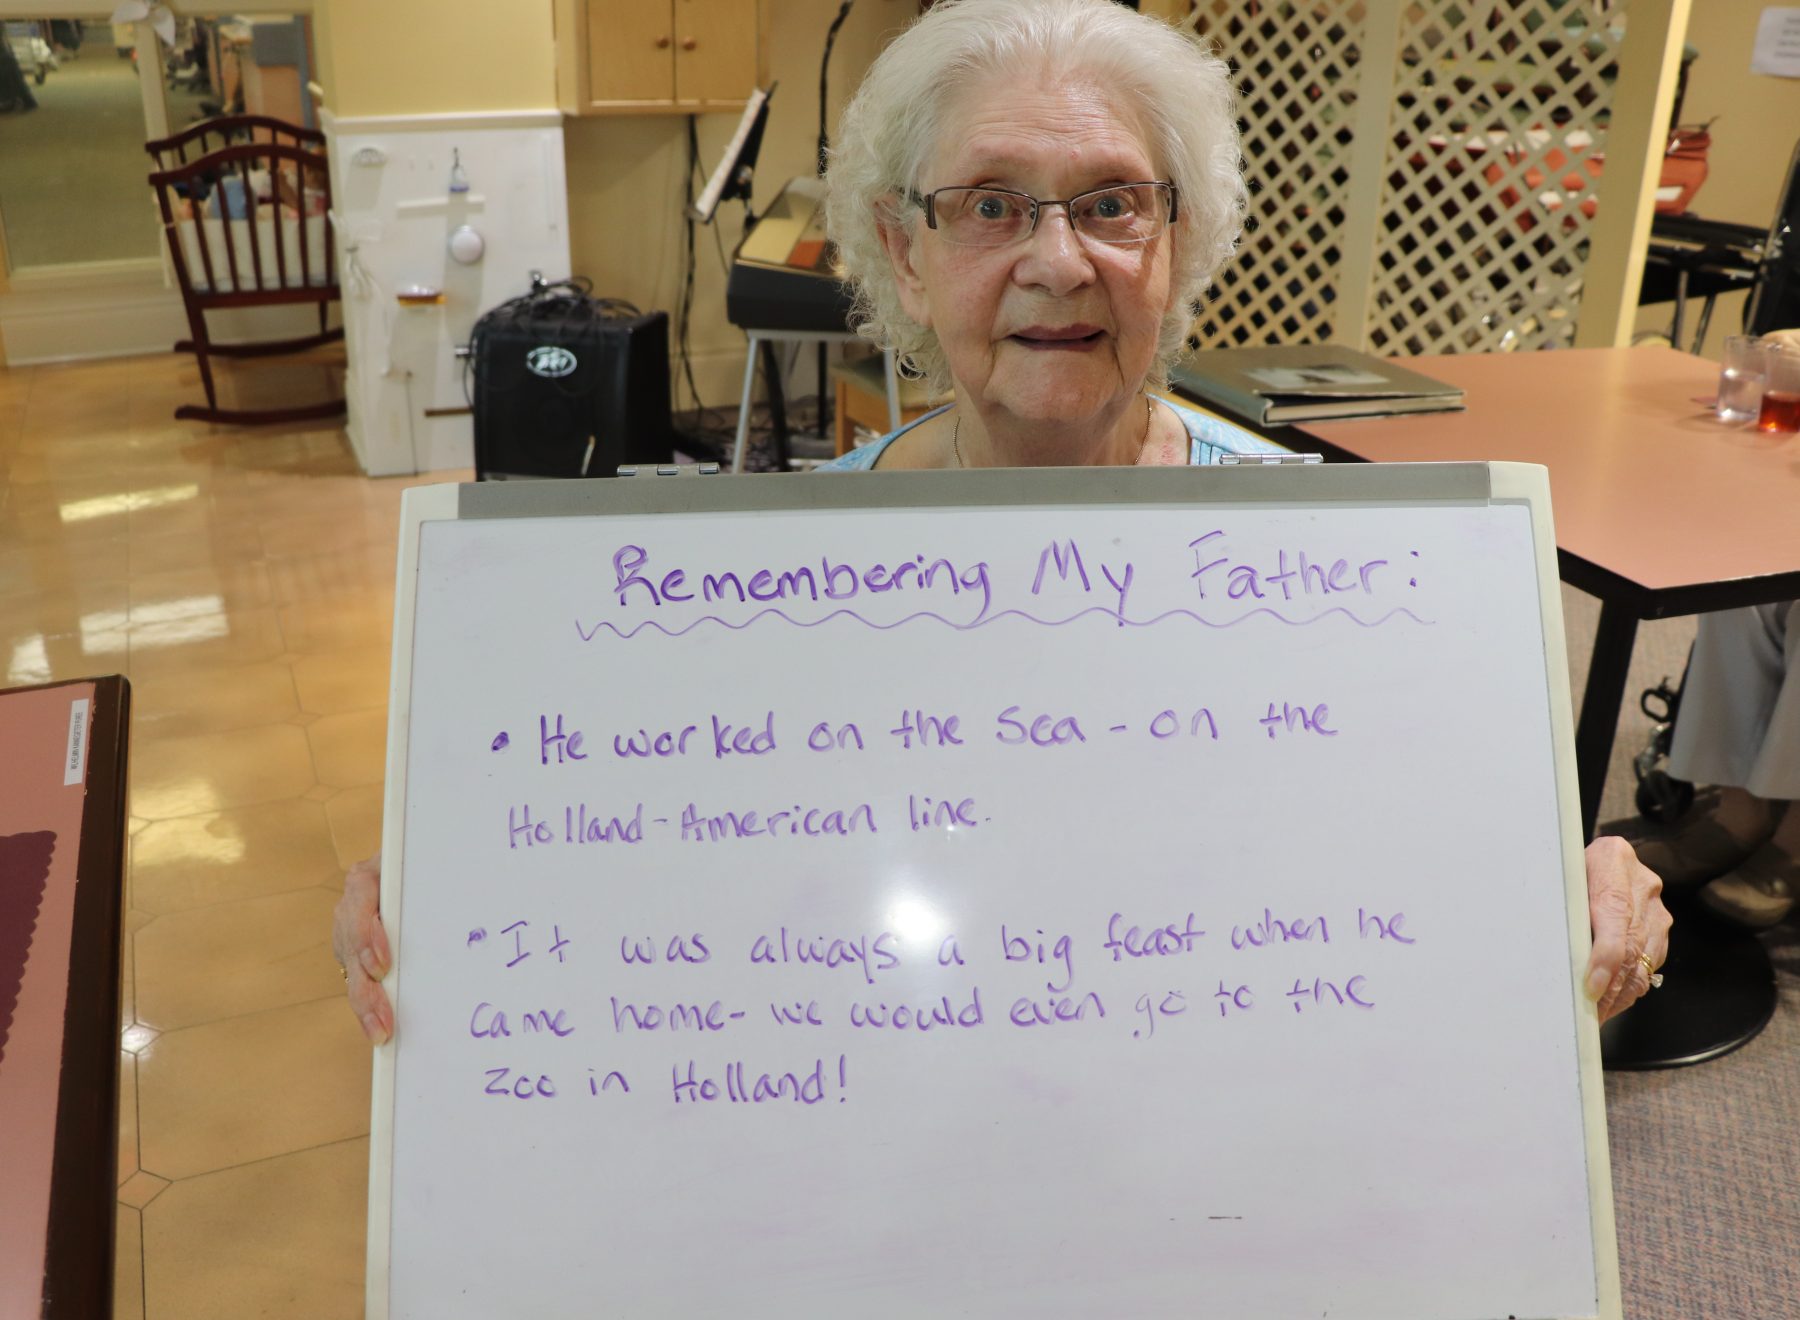 Remembering My Father:
• He worked on the Sea - on the
Holland-American line.
• It was always a big feast when he
came home - we would even go to the
zoo in Holland!